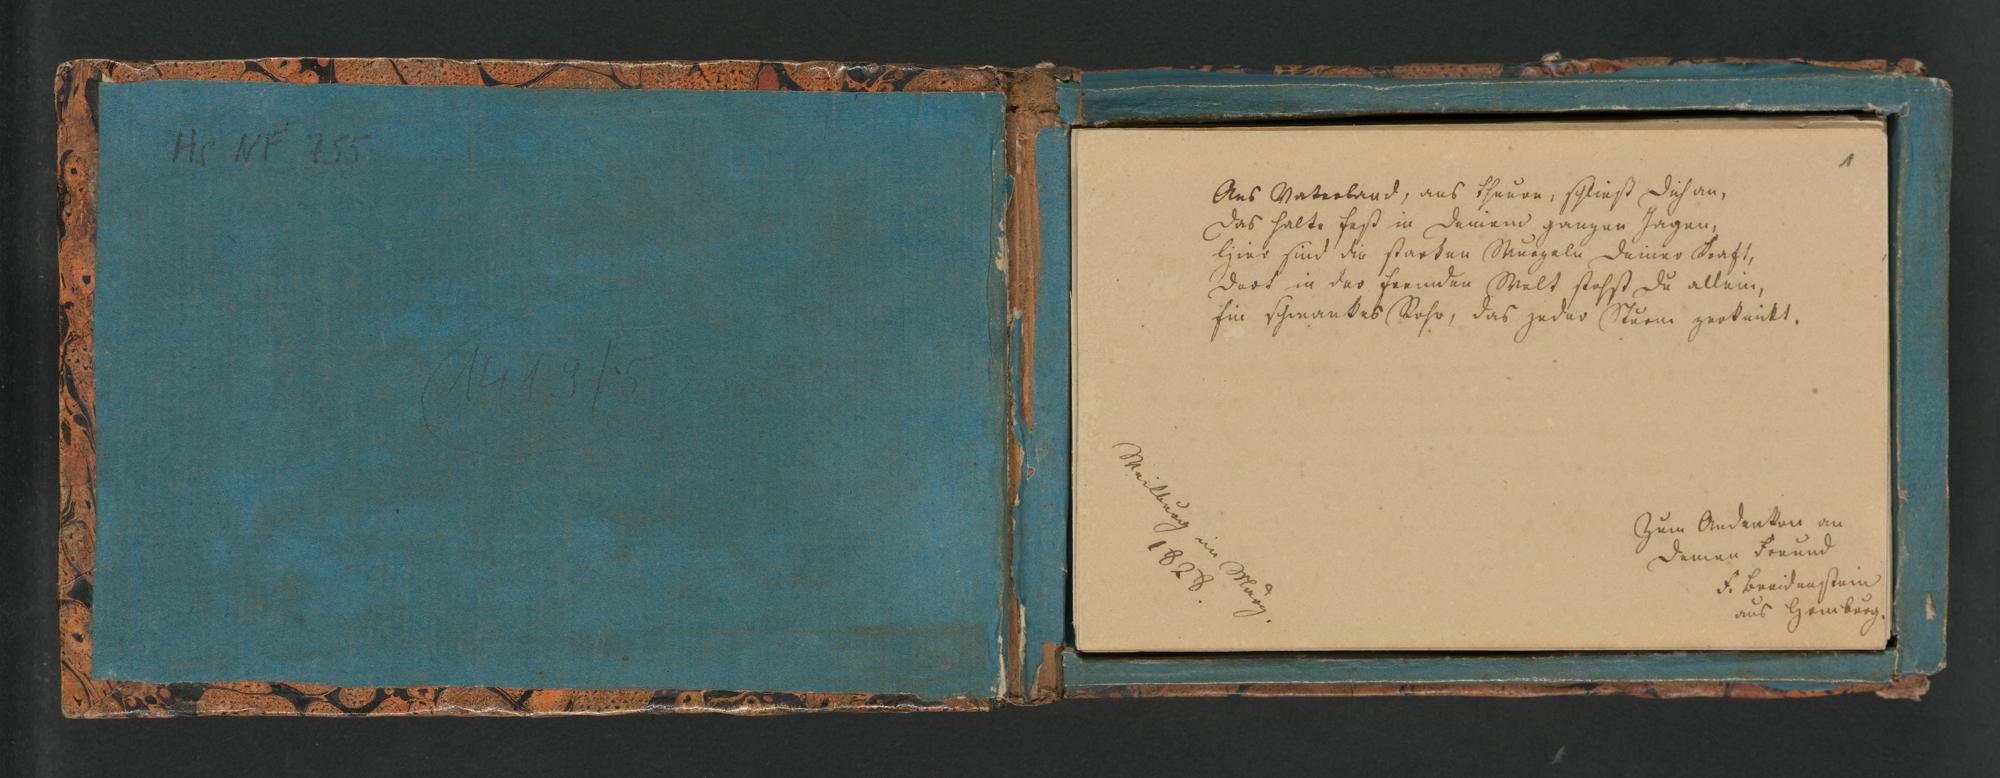 Hs NF 755
1419/5
1
Ans Vaterland, ans theure, schließ Dich an,
Das halte fest in Deinem ganzen Herzen,
Hier sind die starken Wurzeln Deiner Kraft,
Dort in der fremden Welt stehst Du allein,
Ein schwankes Rohr, das jeder Sturm zerknickt.
Weilburg im März.
1828.
Zum Andenken an
Deinen Freund
F. Breidenstein
aus Homburg.